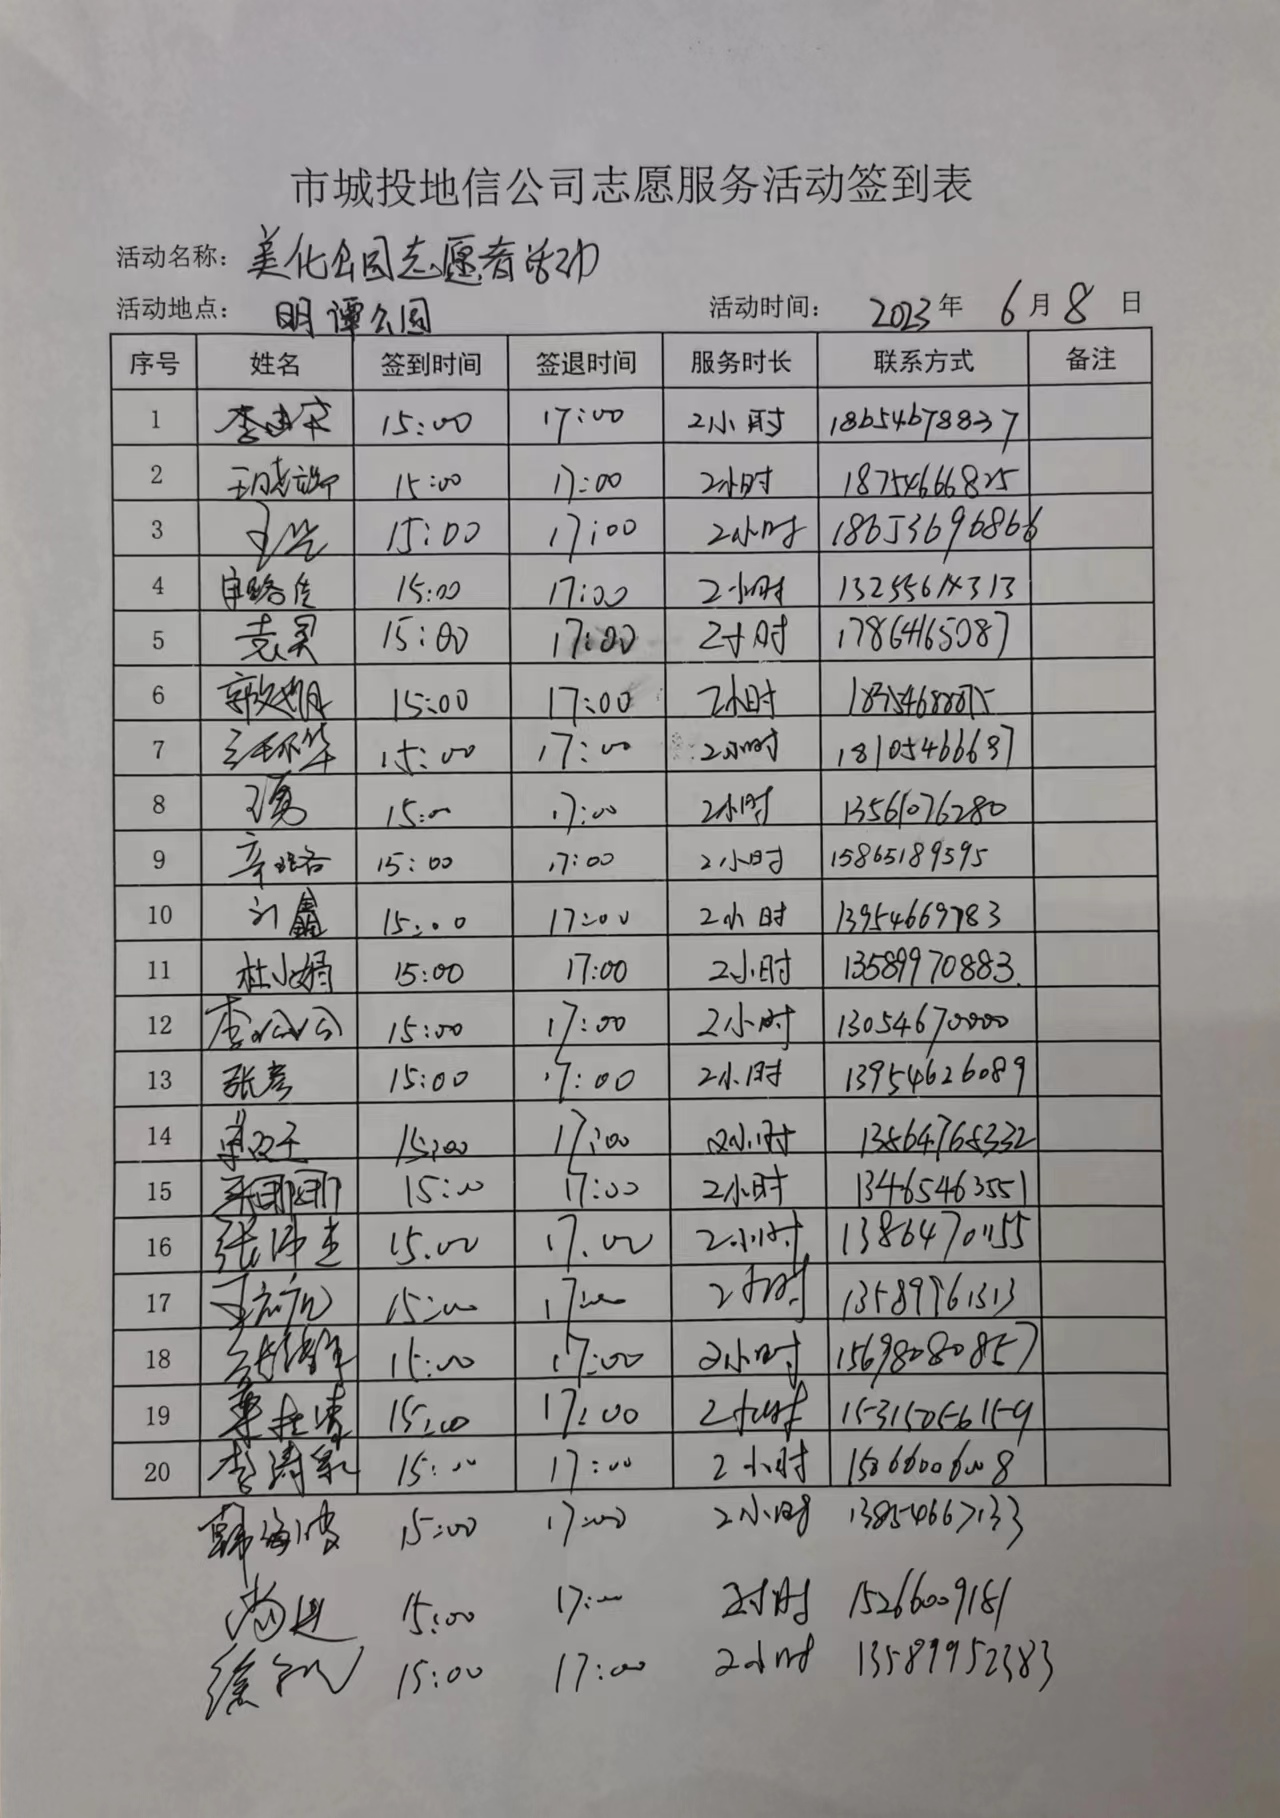 市城投地信公司志愿服务活动签到表
活动名称：美化公园志愿者活动
活动地点：明潭公园 活动时间：2023年6月8日
序号 姓名 签到时间 签退时间 服务时长 联系方式 备注
1 15:00 17:00 2小时 18654678837
2 15:00 17:00 2小时 18754666825
3 15:00 17:00 2小时 18653696866
4 15:00 17:00 2小时
5 袁昊 15:00 17:00 2小时 17864165087
6 15:00 17:00 2小时
7 15:00 17:00 2小时 18105466637
8 王勇 15:00 17:00 2小时 13561076280
9 15:00 17:00 2小时 15865189595
10 刘鑫 15:00 17:00 2小时 13954669783
11 杜小娟 15:00 17:00 2小时 13589970883.
12 李公公 15:00 17:00 2小时 13054670000
13 张彦 15:00 17:00 2小时 13954626089
14 15:00 17:00 2小时 13564765332
15 15:00 17:00 2小时 13465463551
16 15:00 17:00 2小时 13864701155
17 15:00 17:00 2小时 13589961313
18 15:00 17:00 2小时 15698080857
19 15:00 17:00 2小时 15315056159
20 15:00 17:00 2小时 15066006008
韩海波 15:00 17:00 2小时 13854667133
尚进 15:00 17:00 2小时 15266009181
徐 15:00 17:00 2小时 13589952383